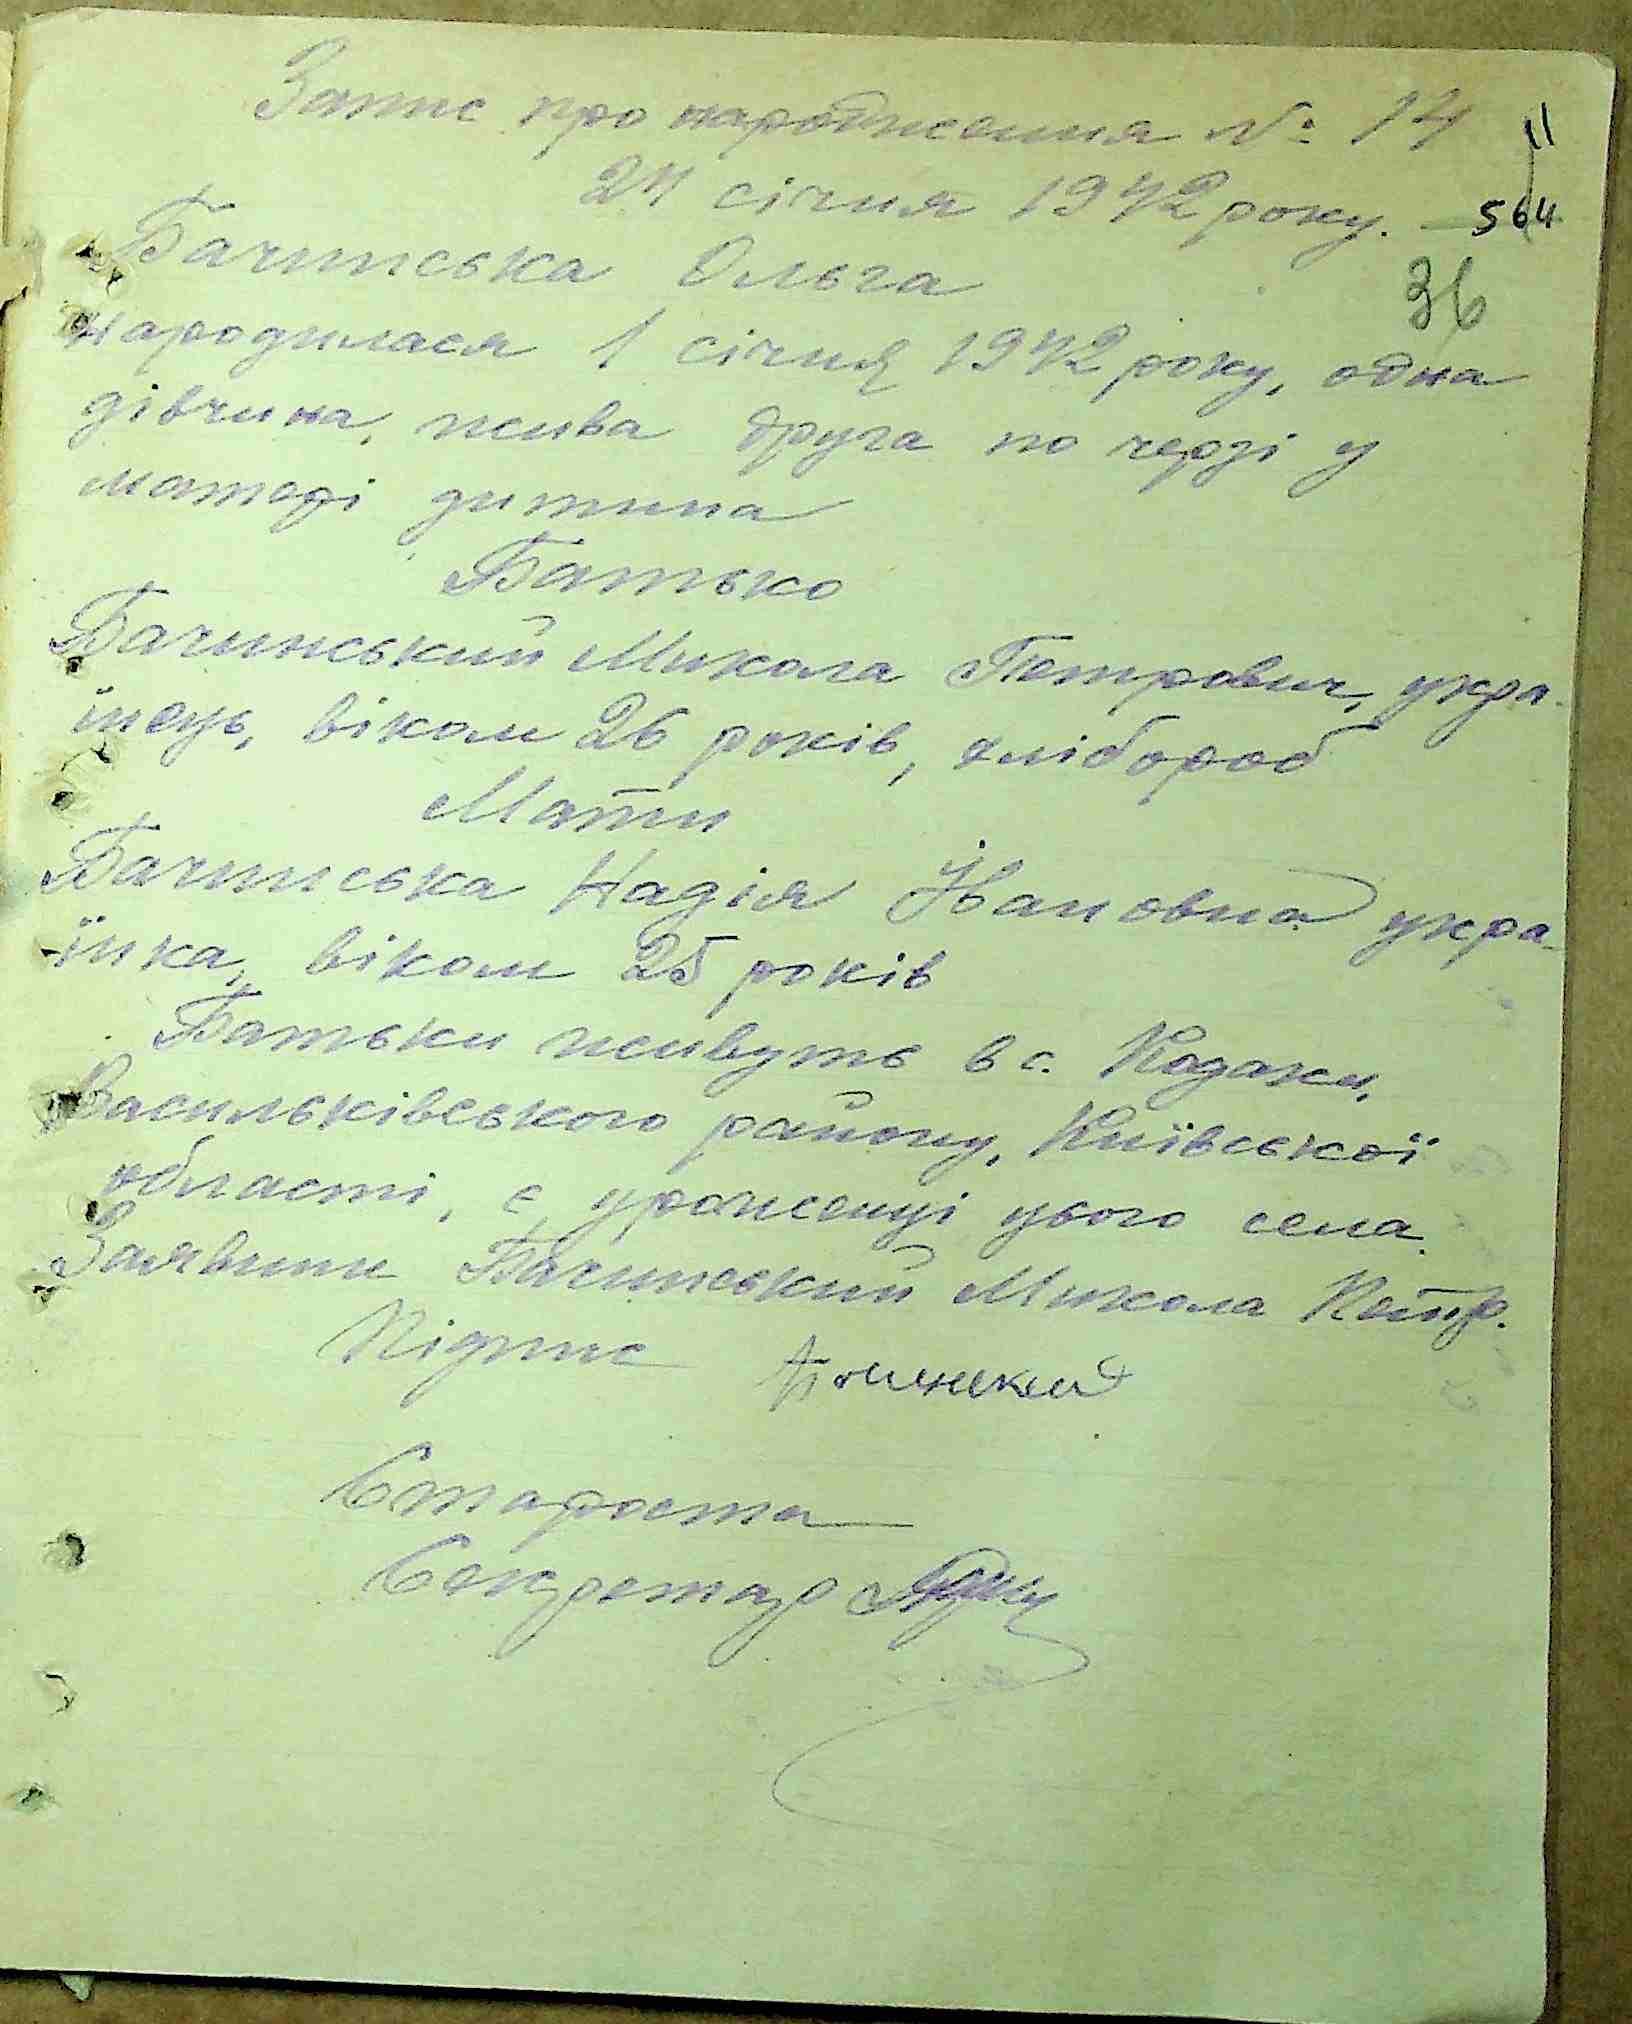 Запис про народження № 14
11
24 січня 1942 року.
564
Бачинська Ольга
36
народилася 1 січня 1942 року, одна
дівчина, жива друга по черзі у
матері дитина
Батько
Бачинський Микола Петрович, укра-
їнець, віком 26 років, хлібороб
Мати
Бачинська Надія Івановна укра-
їнка, віком 25 років
Батьки живуть в с. Кодаки,
Васильківського району, Київської
області, є уроженці цього села.
Заявник Бачинський Микола Петр.
Підпис
Староста
Секретар